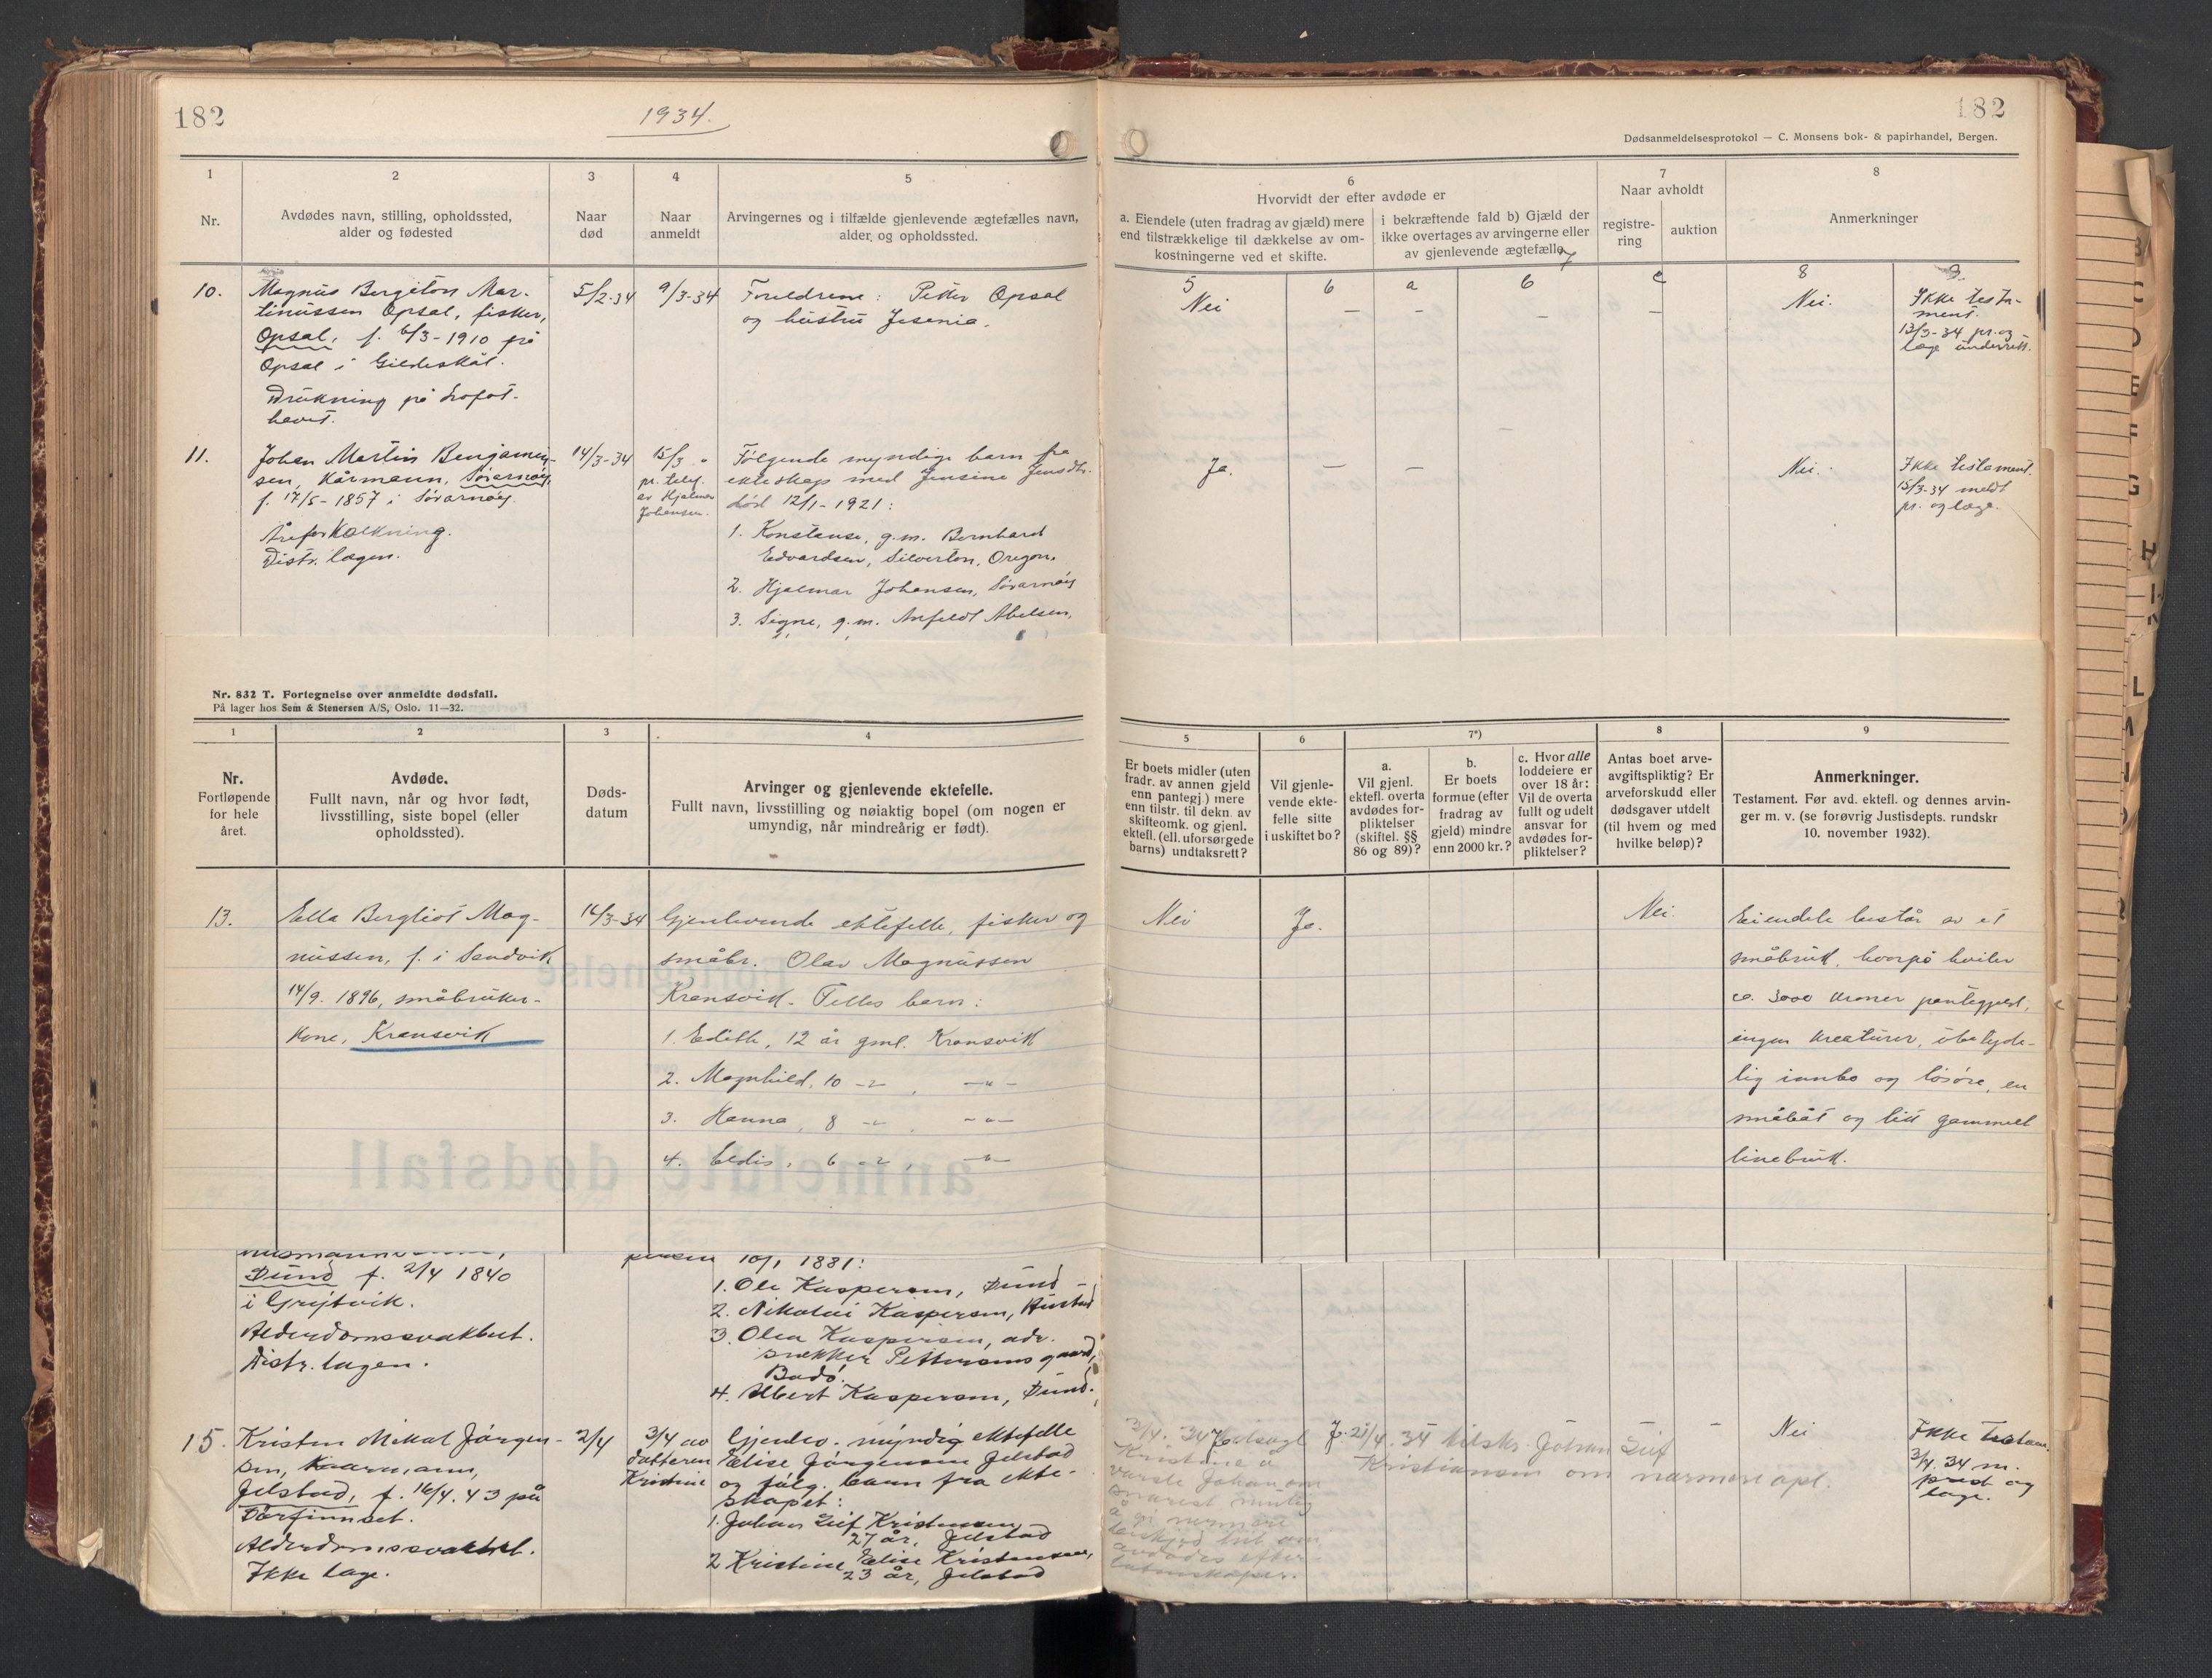 182
1934.
1
2
3
4
5
Nr.
Avdødes navn, stilling, opholdssted,
alder og fødested
Naar
død
Naar
anmeldt
Arvingernes og i tilfælde gjenlevende ægtefælles navn,
alder og opholdssted.
10.
Magnus Bergiton Mar-
tinussen Opsal, fisker,
Opsal, f. 6/3-1910 på
Opsal i Gildeskål.
Drukning på Lofot-
havet.
5/2-34
9/3-34
Foreldrene: Petter Opsal
og hustru Jesenia.
11.
Johan Martin Benjamin-
sen, Kårmann, Sørarnøy,
f. 17/5-1857 i Sørarnøy.
Åreforkalkning.
Distr. lægen.
14/3-34
15/3 "
pr. telef.
av Hjalmar
Johansen.
Følgende myndige barn fra
ekteskap med Jensine Jensdtr.
død 12/1-1921:
1. Konstanse, g.m. Bernhard
Edvardsen, Silverton, Oregon.
2. Hjalmar Johansen, Sørarnøy
3. Signe, g.m. Arfeldt Abelsen,
Nr. 832 T. Fortegnelse over anmeldte dødsfall.
På lager hos Sem & Stenersen A/S, Oslo. 11—32.
1
2
3
4
Nr.
Fortløpende
for hele
året.
Avdøde.
Fullt navn, når og hvor født,
livsstilling, siste bopel (eller
opholdssted).
Døds-
datum
Arvinger og gjenlevende ektefelle.
Fullt navn, livsstilling og nøiaktig bopel (om nogen er
umyndig, når mindreårig er født).
13.
Ella Bergliot Mag-
nussen, f. i Sandvik
14/9. 1896, småbruker-
kone, Kransvik
14/3-34
Gjenlevende ektefelle, fisker og
småbr. Olav Magnussen
Kransvik. Felles barn:
1. Edith, 12 år gml. Kransvik
2. Magnhild, 10 -"- , -"-
3. Hanna, 8 -"- , -"-
4. Eldis, 6 -"- , -"-
Dund f. 2/4 1840
i Grytvik.
Alderdomssvakhet.
Distr. lagen.
10/1 1881:
1. Ole Kaspersen, Dund
2. Nikolai Kaspersen, Hustad
3. Olea Kaspersen, adr.
snekker Pettersens gaard,
Bodø.
4. Albert Kaspersen, Dund.
15.
Kristen Mikal Jørgen-
sen, Kaarmann,
Jelstad, f. 16/4. 43 på
Torfinnset.
Alderdomssvakhet.
Ikke læge.
2/4
3/4 av
datteren
Kristine
Gjenlev. myndig ektefelle
Elise Jørgensen Jelstad
og følg. barn fra ekte-
skapet:
1. Johan Leif Kristensen
27 år, Jelstad
2 Kristine Elise Kristensen,
23 år, Jelstad
182
Dødsanmeldelsesprotokol — C. Monsens bok- & papirhandel, Bergen.
6
Hvorvidt der efter avdøde er
a. Eiendele (uten fradrag av gjæld) mere
end tilstrækkelige til dækkelse av om-
kostningerne ved et skifte.
i bekræftende fald b) Gjæld der
ikke overtages av arvingerne eller
av gjenlevende ægtefælle.
7
Naar avholdt
registre-
ring
auktion
8
Anmerkninger
5
6
a
7
b
c
8
9.
Nei
—
—
—
—
Nei.
Ikke testa-
ment.
13/3-34 pr. og
læge underrett.
Ja.
—
—
Nei.
Ikke testament.
15/3-34 meldt
pr. og læge.
5
6
7*)
8
9
Er boets midler (uten
fradr. av annen gjeld
enn pantegj.) mere
enn tilstr. til dekn. av
skifteomk. og gjenl.
ektefl. (ell. uforsørgede
barns) undtaksrett?
Vil gjenle-
vende ekte-
felle sitte
i uskiftet bo?
a.
Vil gjenl.
ektefl. overta
avdødes for-
pliktelser
(skiftel. §§
86 og 89)?
b.
Er boets
formue (efter
fradrag av
gjeld) mindre
enn 2000 kr.?
c. Hvor alle
loddeiere er
over 18 år:
Vil de overta
fullt og udelt
ansvar for
avdødes for-
pliktelser?
Antas boet arve-
avgiftspliktig? Er
arveforskudd eller
dødsgaver utdelt
(til hvem og med
hvilke beløp)?
Anmerkninger.
Testament. Før avd. ektefl. og dennes arvin-
ger m. v. (se forøvrig Justisdepts. rundskr
10. november 1932).
Nei
Ja.
Nei.
Eiendele består av et
småbruk, hvorpå hviler
ca. 3000 kroner pantegjeld,
ingen kreaturer, ubetyde-
lig innbo og løsøre, en
småbåt og litt gammelt
linebruk.
3/4. 34 tilsagt
Kristine å
varsle Johan om
snarest mulig
å gi nærmere
beskjed hit om
avdødes efter-
latenskaper.
21/4. 34 tilskr. Johan Leif
Kristiansen om nærmere opl.
Nei
Ikke testam.
3/4. 34 m.
prest og
læge.